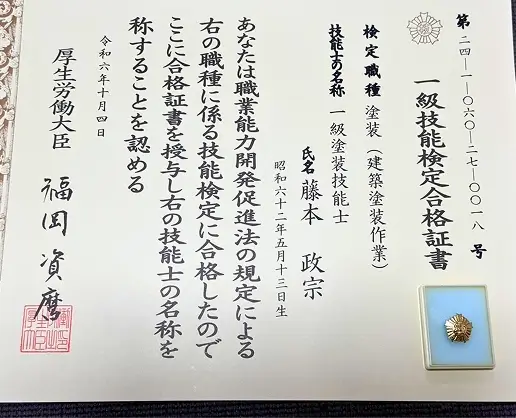 第二四―一―〇六〇―二七―〇〇一八号
一級技能検定合格証書
検定職種 塗装（建築塗装作業）
技能士の名称 一級塗装技能士
氏名 藤本 政宗
昭和六十二年五月十三日生
あなたは職業能力開発促進法の規定による
右の職種に係る技能検定に合格したので
ここに合格証書を授与し右の技能士の名称を
称することを認める
令和六年十月四日
厚生労働大臣
福岡資麿